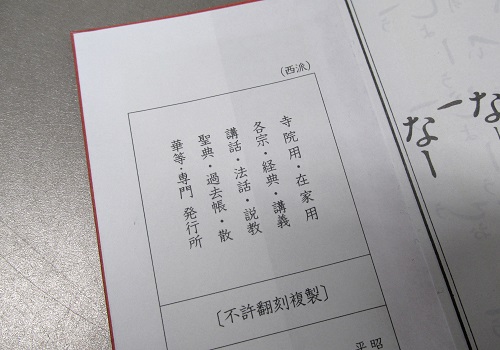 (西派)
寺院用・在家用
各宗・経典・講義
講話・法話・説教
聖典・過去帳・散
華等・専門 発行所
〔不許翻刻複製〕
昭
平
なー
なー